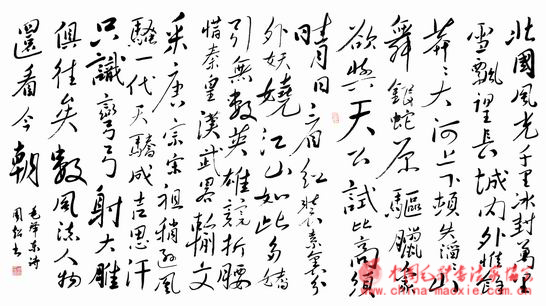 北國風光千里冰封萬里
雪飄望長城內外惟餘
莽々大河上下頓失滔々山
舞銀蛇原驅臘象
欲與天公試比高須
晴日看紅裝素裹分
外妖嬈江山如此多嬌
引無數英雄競折腰
惜秦皇漢武畧輸文
采唐宗宋祖稍遜風
騷一代天驕成吉思汗
只識彎弓射大雕
俱往矣數風流人物
還看今朝
毛澤東詩
www.china-maoxie.com